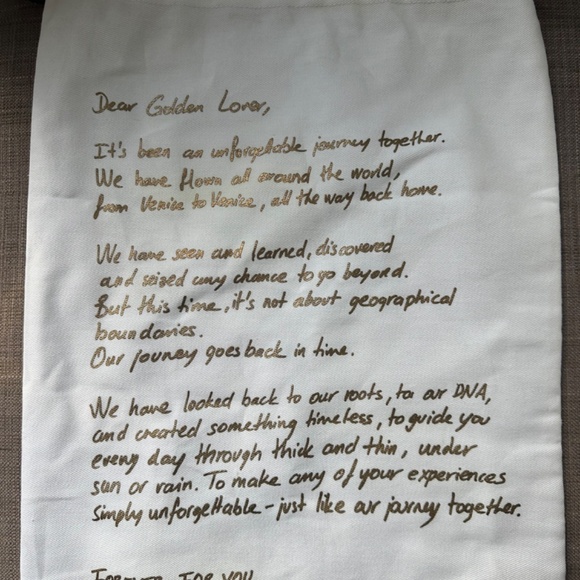 Dear Golden Lover,
It's been an unforgettable journey together.
We have flown all around the world,
from Venice to Venice, all the way back home.
We have seen and learned, discovered
and seized any chance to go beyond.
But this time, it's not about geographical
boundaries.
Our journey goes back in time.
We have looked back to our roots, to our DNA,
and created something timeless, to guide you
every day through thick and thin, under
sun or rain. To make any of your experiences
simply unforgettable - just like our journey together.
FOREVER FOR YOU